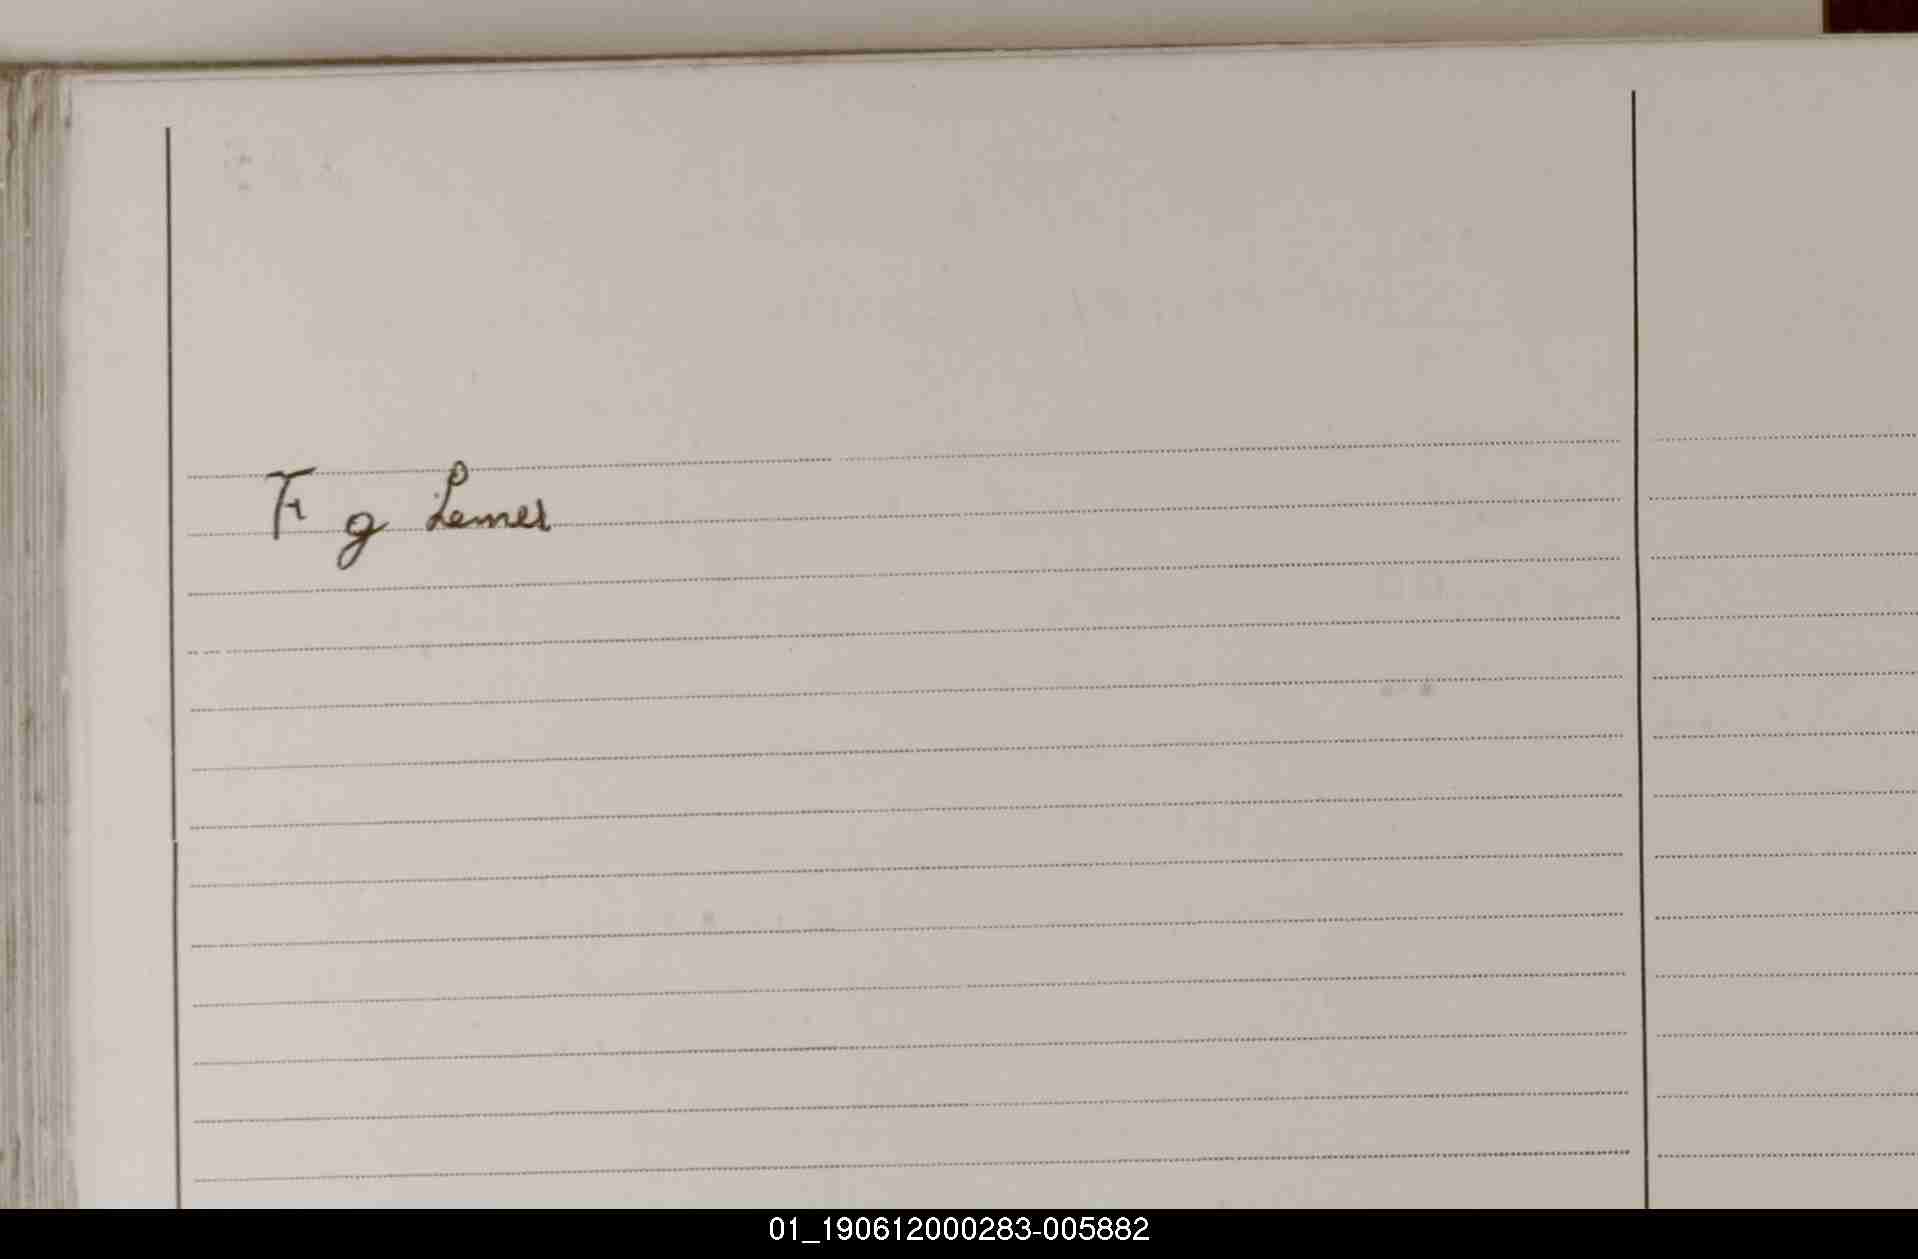 F g Lemes
01_190612000283-005882